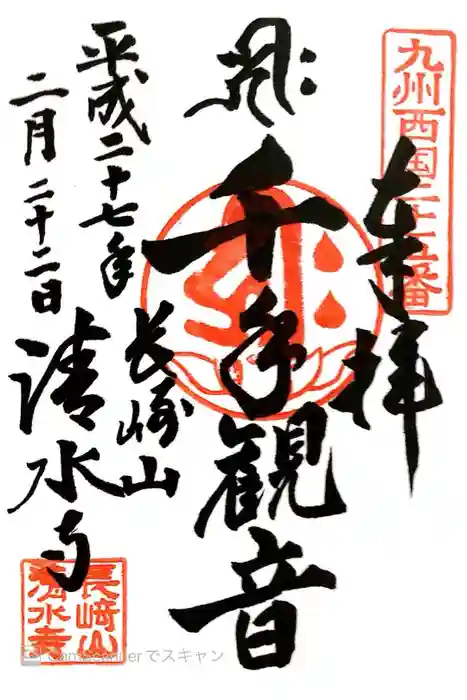 九州西国二十五番
奉拝
千手観音
長崎山
清水寺
平成二十七年
二月二十二日
長崎山
清水寺
CamScannerでスキャン